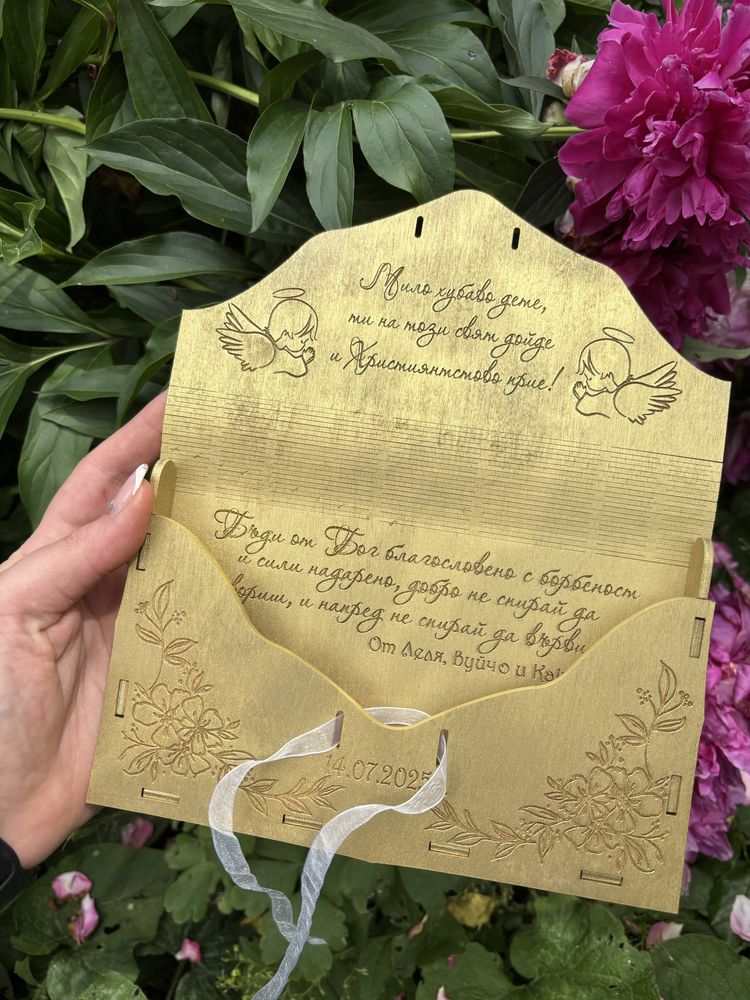 Мило хубаво дете,
ти на този свят дойде
и Християнтстово прие!
Бъди от Бог благословено с борбеност
и сили надарено, добро не спирай да
ориш, и напред не спирай да върви
От Леля, Вуйчо и
14.07.2025